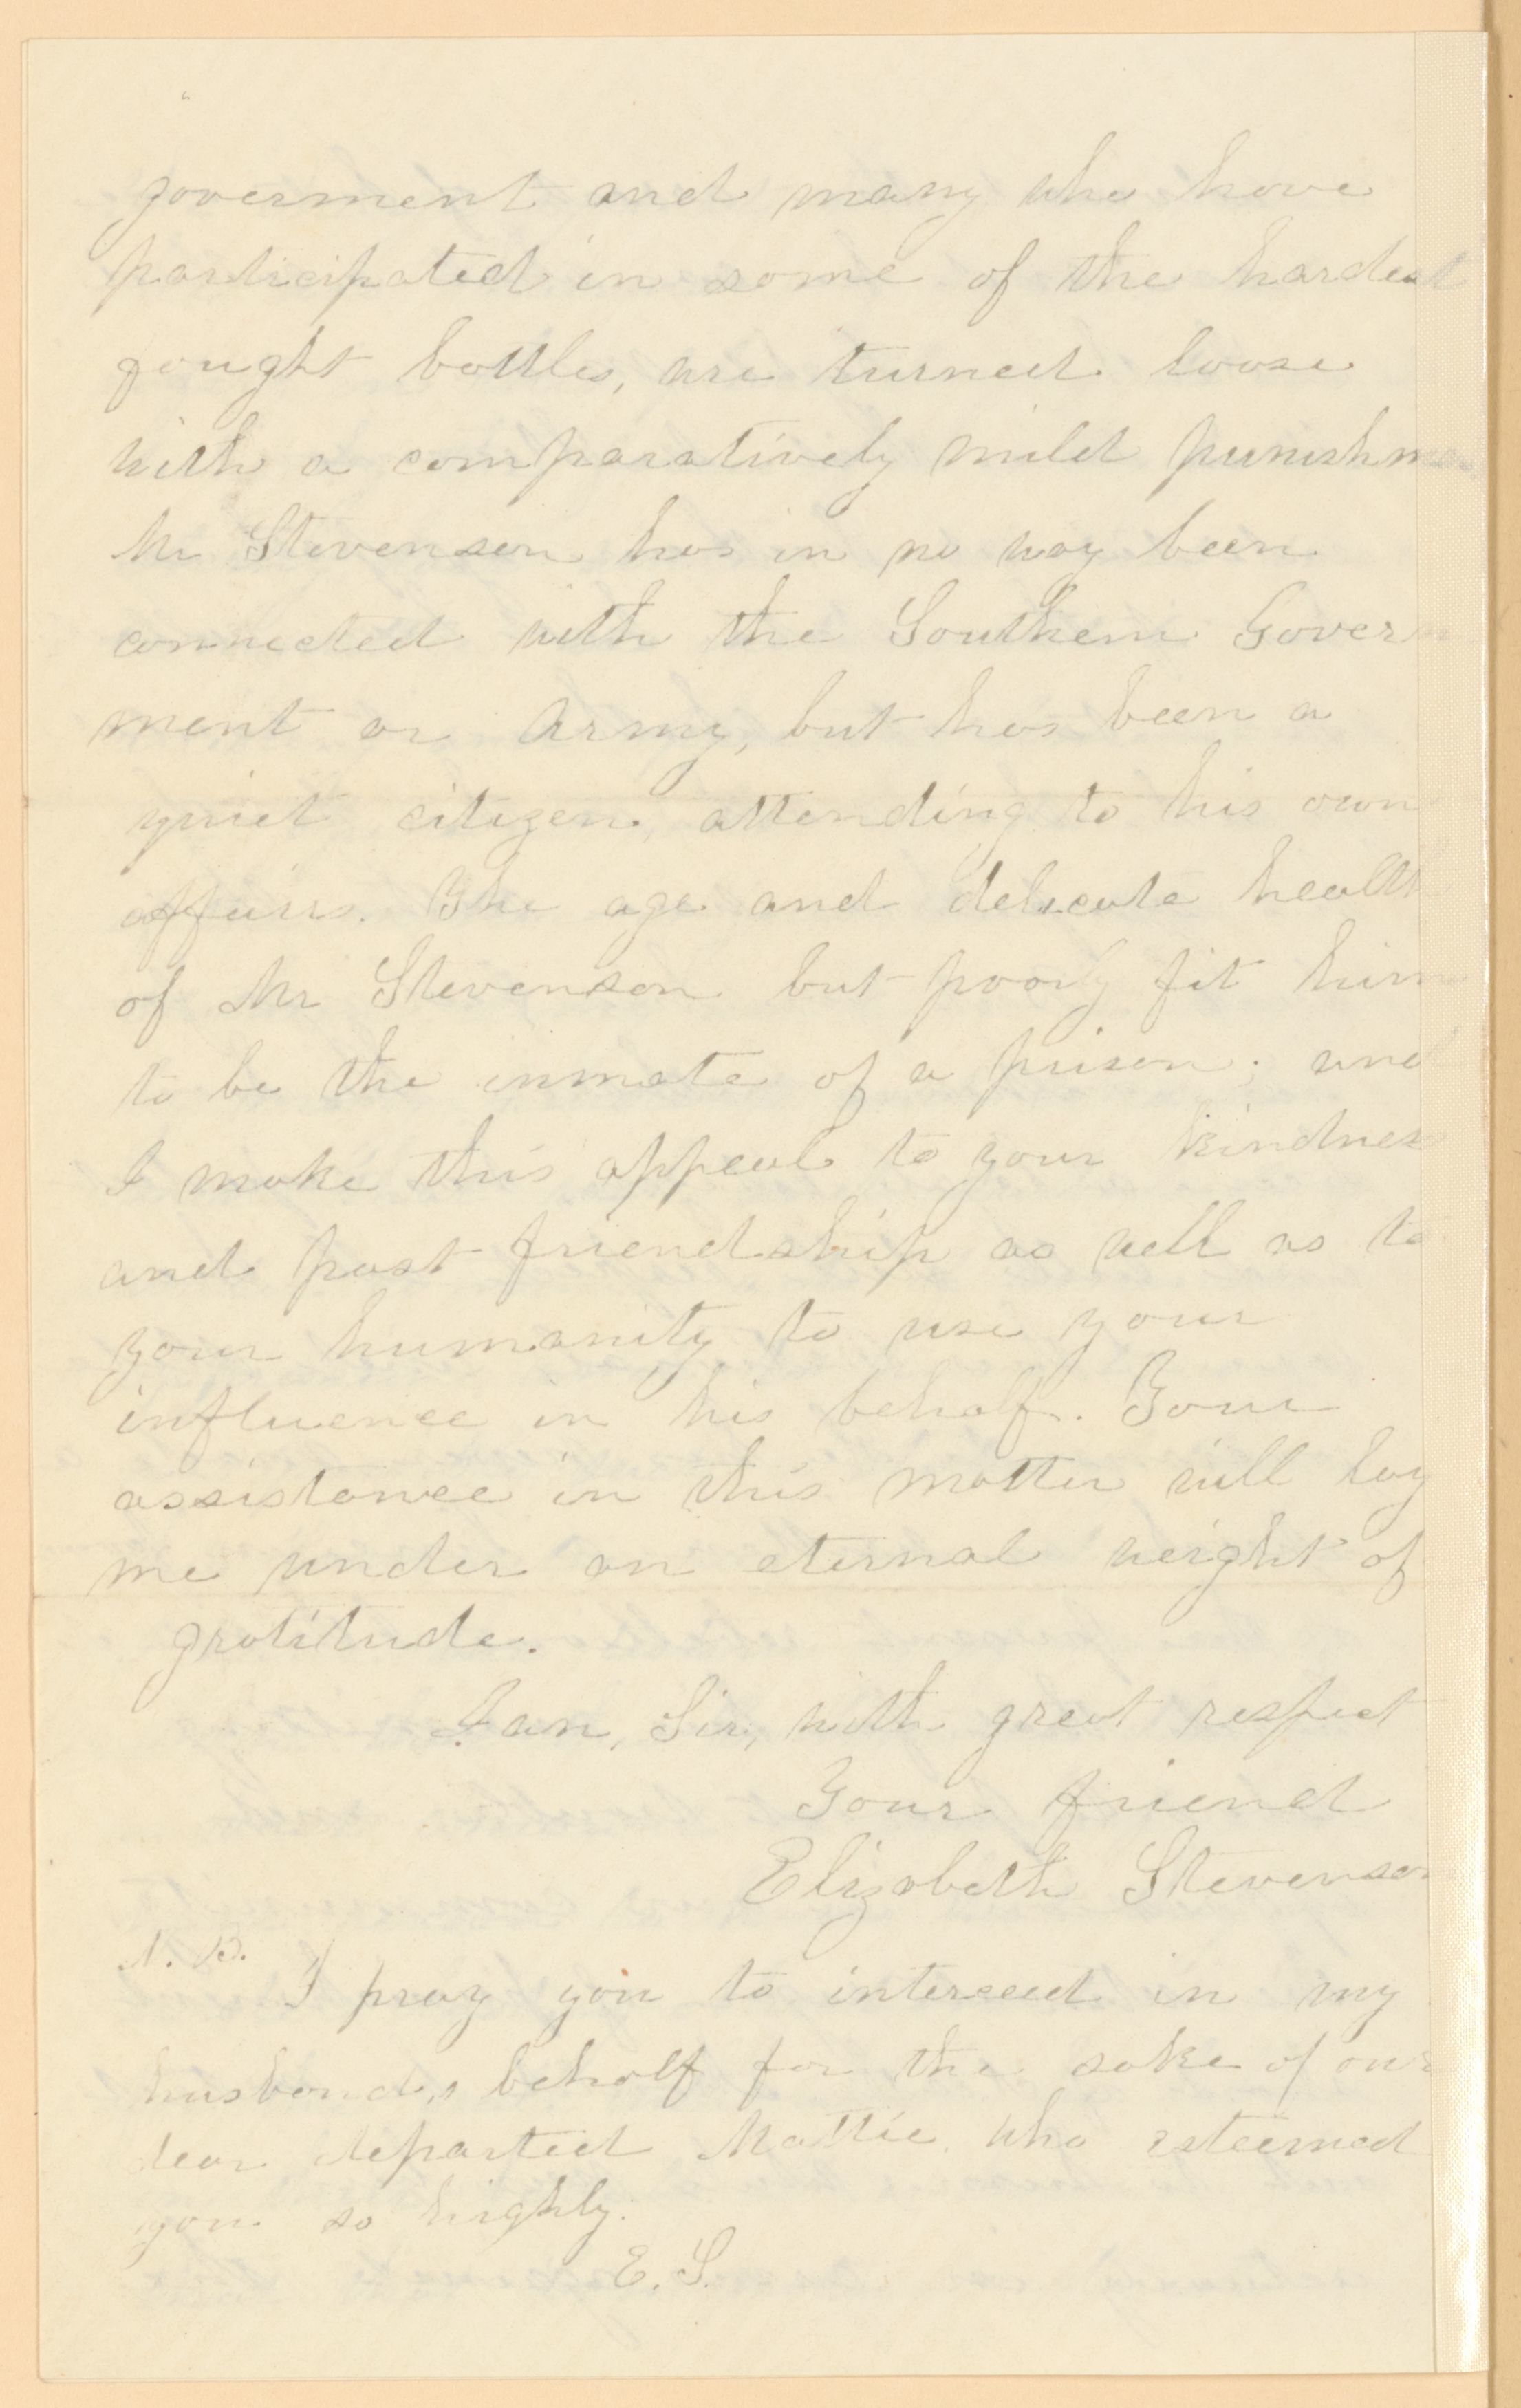 goverment and many who have
participated in some of the hardest
fought battles, are turned loose
with a comparatively mild punishme
Mr Stevenson has in no way been
connected with the Southern Gover
ment or Army, but has been a
quiet citizen attending to his own
affairs. The age and delicate health
of Mr Stevenson but poorly fit him
to be the inmate of a prison; and
I make this appeal to your kindness
and past friendship as well as to
your humanity to use your
influence in his behalf. Your
assistance in this matter will lay
me under an eternal weight of
gratitude.
I am, Sir, with great respect
Your friend
Elizabeth Stevenson
N. B.
I pray you to interceed in my
husband,s behalf for the sake of our
dear departed Mattie, who esteemed
you so highly.
E. S.